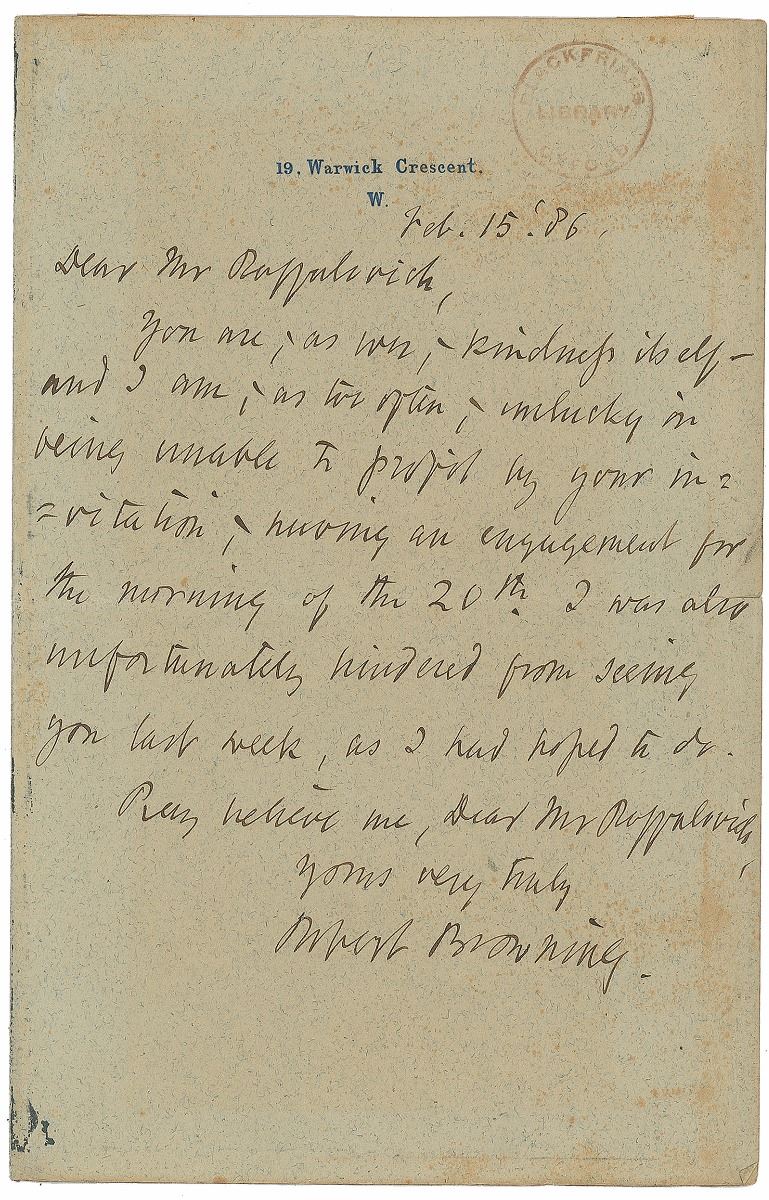 BLACKFRIARS
LIBRARY
OXFORD
19, Warwick Crescent.
W.
Feb. 15. '86.
Dear Mr Raffalovich,
You are, - as ever, - kindness itself -
and I am, - as too often, - unlucky in
being unable to profit by your in=
=vitation, - having an engagement for
the morning of the 20th. I was also
unfortunately hindered from seeing
you last week, as I had hoped to do.
Pray believe me, Dear Mr Raffalovich,
yours very truly
Robert Browning.